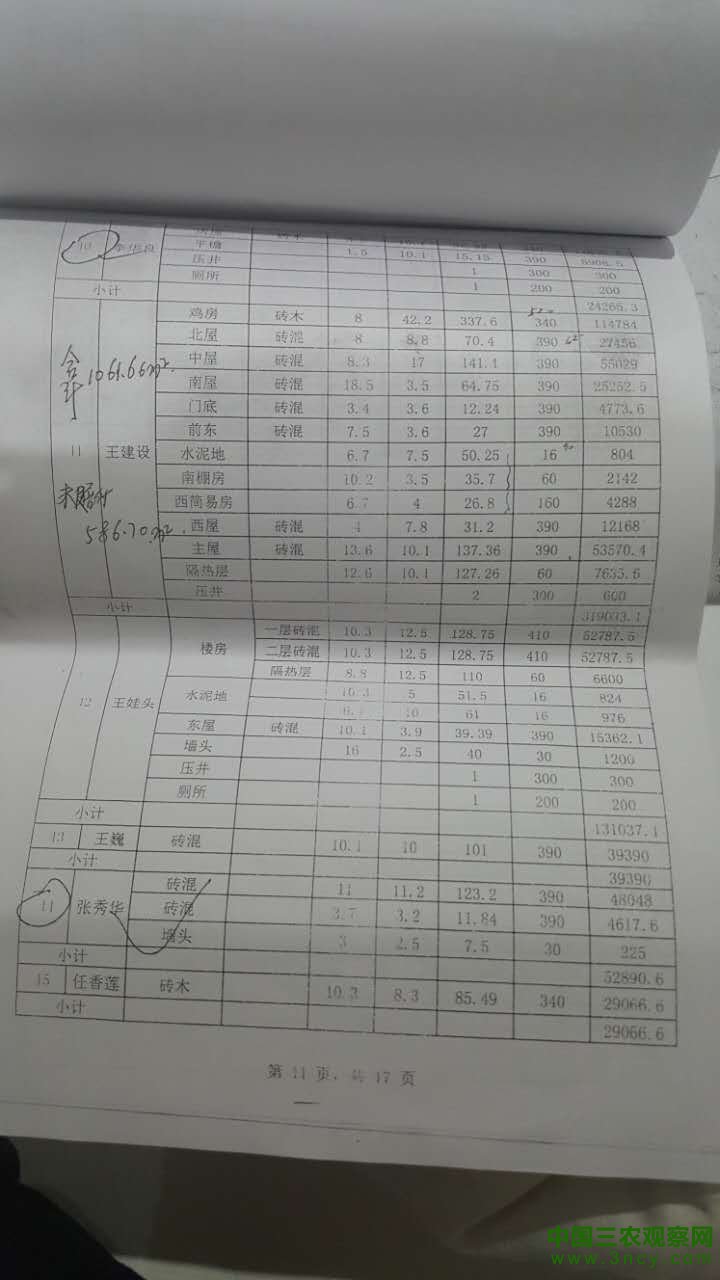 平檐 1.5 10.1 15.15 390 5908.5
10 压井 1 300 300
厕所 1 200 200
小计 24265.3
鸡房 砖木 8 42.2 337.6 340 114784
北屋 砖混 8 8.8 70.4 390 27456
中屋 砖混 8.3 17 141.1 390 55029
合计1061.66m².
南屋 砖混 18.5 3.5 64.75 390 25252.5
门底 砖混 3.4 3.6 12.24 390 4773.6
前东 砖混 7.5 3.6 27 390 10530
11 王建设 水泥地 6.7 7.5 50.25 16 804
南棚房 10.2 3.5 35.7 60 2142
西简易房 6.7 4 26.8 160 4288
586.70m².
西屋 砖混 4 7.8 31.2 390 12168
主屋 砖混 13.6 10.1 137.36 390 53570.4
隔热层 12.6 10.1 127.26 60 7635.6
压井 2 300 600
小计 319033.1
楼房 一层砖混 10.3 12.5 128.75 410 52787.5
二层砖混 10.3 12.5 128.75 410 52787.5
隔热层 8.8 12.5 110 60 6600
12 王娃头 水泥地 10.3 5 51.5 16 824
6.1 10 61 16 976
东屋 砖混 10.1 3.9 39.39 390 15362.1
墙头 16 2.5 40 30 1200
压井 1 300 300
厕所 1 200 200
小计 131037.1
13 王巍 砖混 10.1 10 101 390 39390
小计 39390
砖混 11 11.2 123.2 390 48048
张秀华 砖混 3.7 3.2 11.84 390 4617.6
墙头 3 2.5 7.5 30 225
小计 52890.6
15 任香莲 砖木 10.3 8.3 85.49 340 29066.6
小计 29066.6
第 11 页，共 17 页
中国三农观察网
www.3ncy.com